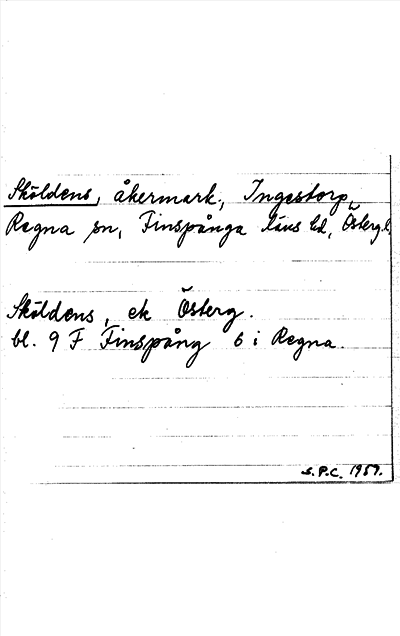 Sköldens, åkermark, Ingestorp,
Regna sn, Finspånga läns hd, Östergl.
Sköldens, ek Österg.
bl. 9 F Finspång 6 i Regna.
S.P.C. 1959.